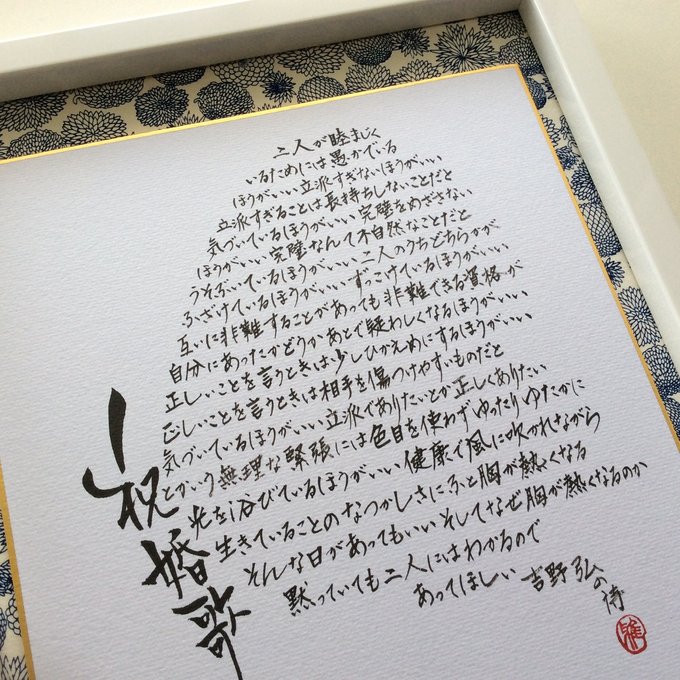 二人が睦まじく
いるためには愚かでいる
ほうがいい立派すぎないほうがいい
立派すぎることは長持ちしないことだと
気づいているほうがいい完璧をめざさない
ほうがいい完璧なんて不自然なことだと
うそぶいているほうがいい二人のうちどちらかが
ふざけているほうがいいずっこけているほうがいい
互いに非難することがあっても非難できる資格が
自分にあったかどうかあとで疑わしくなるほうがいい
正しいことを言うときは少しひかえめにするほうがいい
正しいことを言うときは相手を傷つけやすいものだと
気づいているほうがいい立派でありたいとか正しくありたい
とかいう無理な緊張には色目を使わずゆったりゆたかに
光を浴びているほうがいい健康で風に吹かれながら
生きていることのなつかしさにふと胸が熱くなる
そんな日があってもいいそしてなぜ胸が熱くなるのか
黙っていても二人にはわかるので
あってほしい
吉野弘の詩
祝婚歌